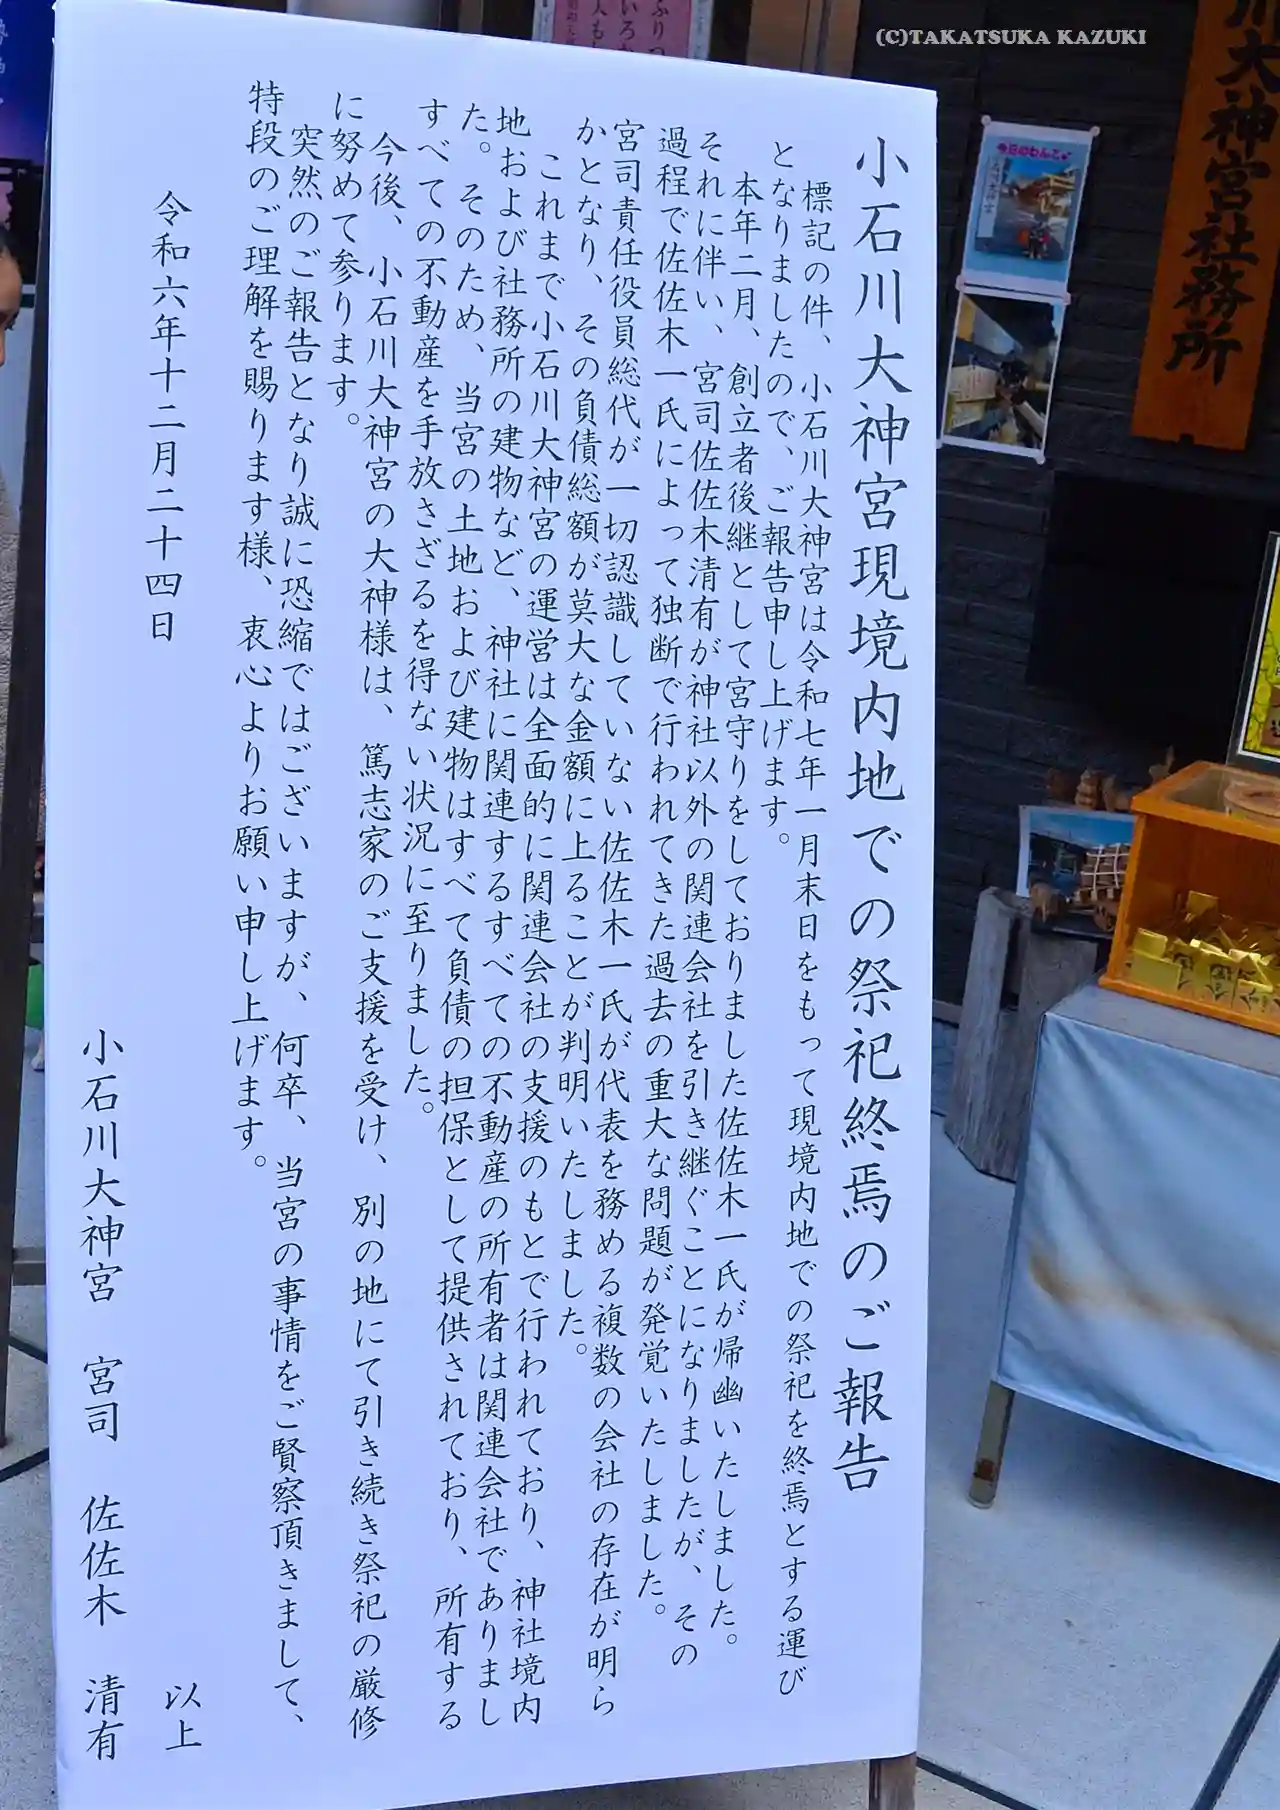 (C)TAKATSUKA KAZUKI
川大神宮社務所
今日のわんこ
小石川大神宮現境内地での祭祀終焉のご報告
標記の件、小石川大神宮は令和七年一月末日をもって現境内地での祭祀を終焉とする運び
となりましたので、ご報告申し上げます。
本年二月、創立者後継として宮守りをしておりました佐佐木一氏が帰幽いたしました。
それに伴い、宮司佐佐木清有が神社以外の関連会社を引き継ぐことになりましたが、その
過程で佐佐木一氏によって独断で行われてきた過去の重大な問題が発覚いたしました。
宮司責任役員総代が一切認識していない佐佐木一氏が代表を務める複数の会社の存在が明ら
かとなり、その負債総額が莫大な金額に上ることが判明いたしました。
これまで小石川大神宮の運営は全面的に関連会社の支援のもとで行われており、神社境内
地および社務所の建物など、神社に関連するすべての不動産の所有者は関連会社でありまし
た。そのため、当宮の土地および建物はすべて負債の担保として提供されており、所有する
すべての不動産を手放さざるを得ない状況に至りました。
今後、小石川大神宮の大神様は、篤志家のご支援を受け、別の地にて引き続き祭祀の厳修
に努めて参ります。
突然のご報告となり誠に恐縮ではございますが、何卒、当宮の事情をご賢察頂きまして、
特段のご理解を賜ります様、衷心よりお願い申し上げます。
以上
令和六年十二月二十四日
小石川大神宮 宮司 佐佐木 清有